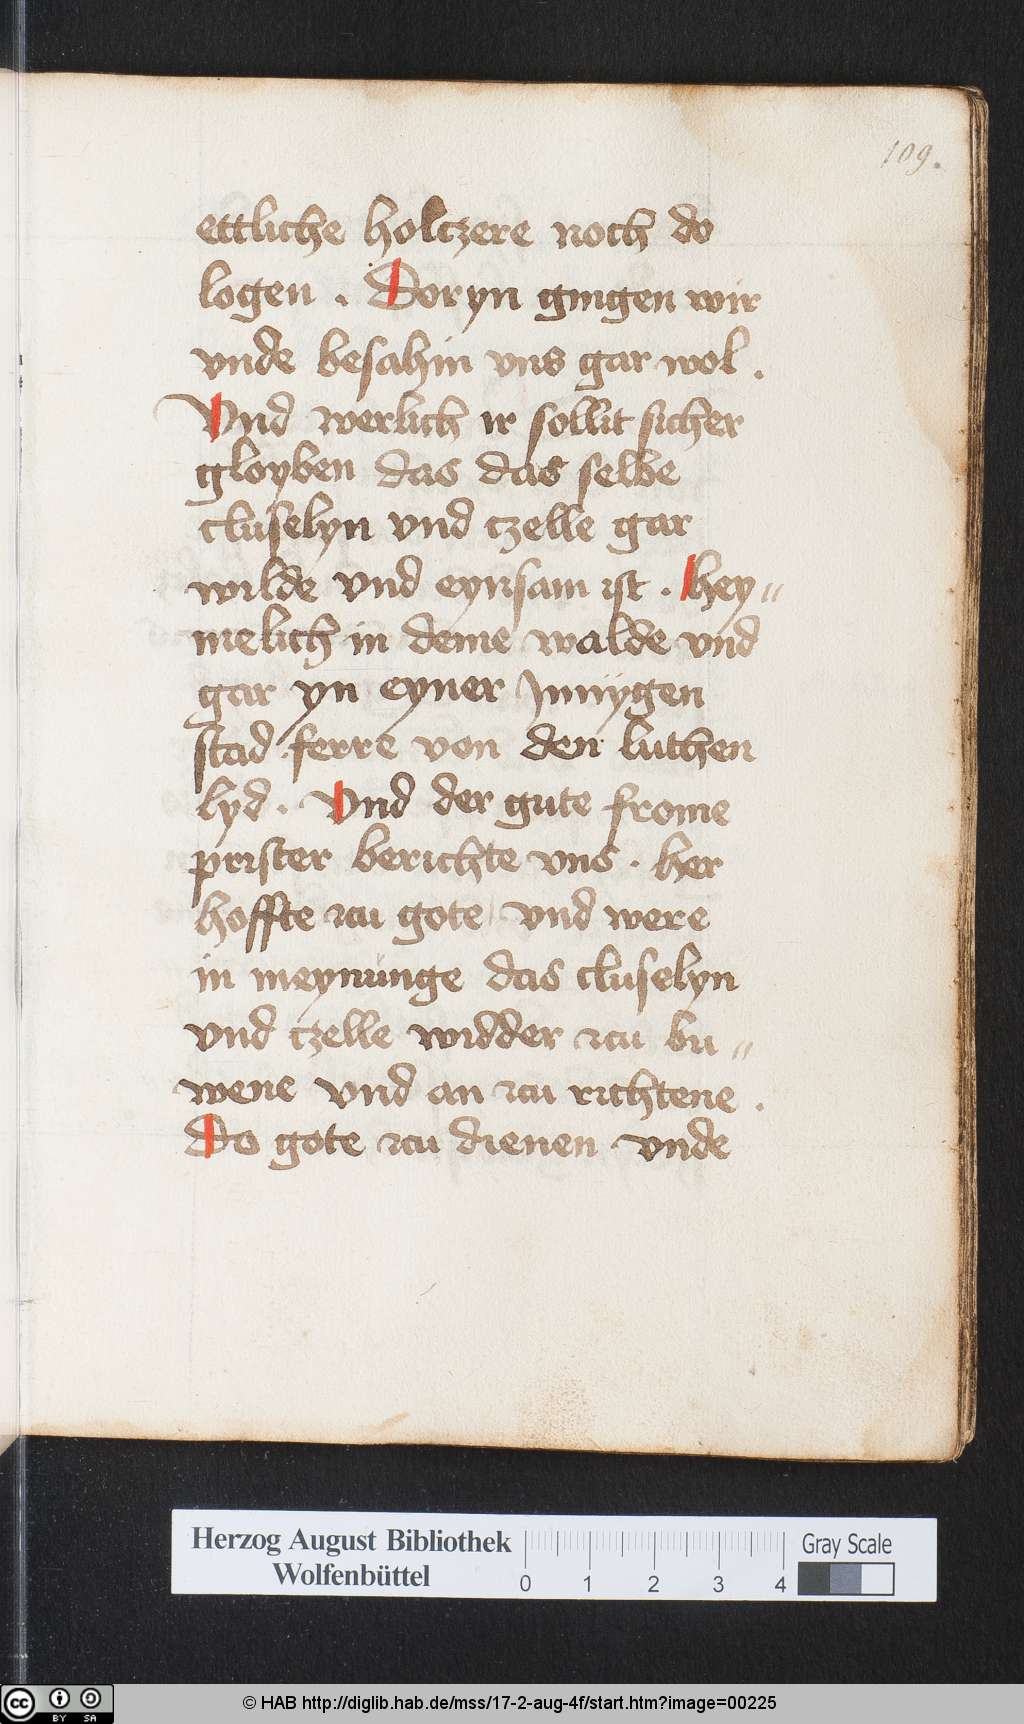 109.
ettliche holtzere noch do
logen . Doryn gingen wir
vnde besahin vns gar wol .
Vnd werlich ir sollit sicher
gloyben das das selbe
cluselyn vnd czelle gar
wilde vnd eynsam ist . hey„
melich in deme walde vnd
gar yn eyner Jnniygen
stad ferre von den luthen
lyd . Vnd der gute frome
prister berichte vns . her
hoffte zcu gote vnd were
in meynunge das cluselyn
vnd czelle widder zcu bu„
wene vnd an zcu richtene .
Do gote zcu dienen vnde
Herzog August Bibliothek
Wolfenbüttel
0 1 2 3 4
Gray Scale
cc BY SA
© HAB http://diglib.hab.de/mss/17-2-aug-4f/start.htm?image=00225